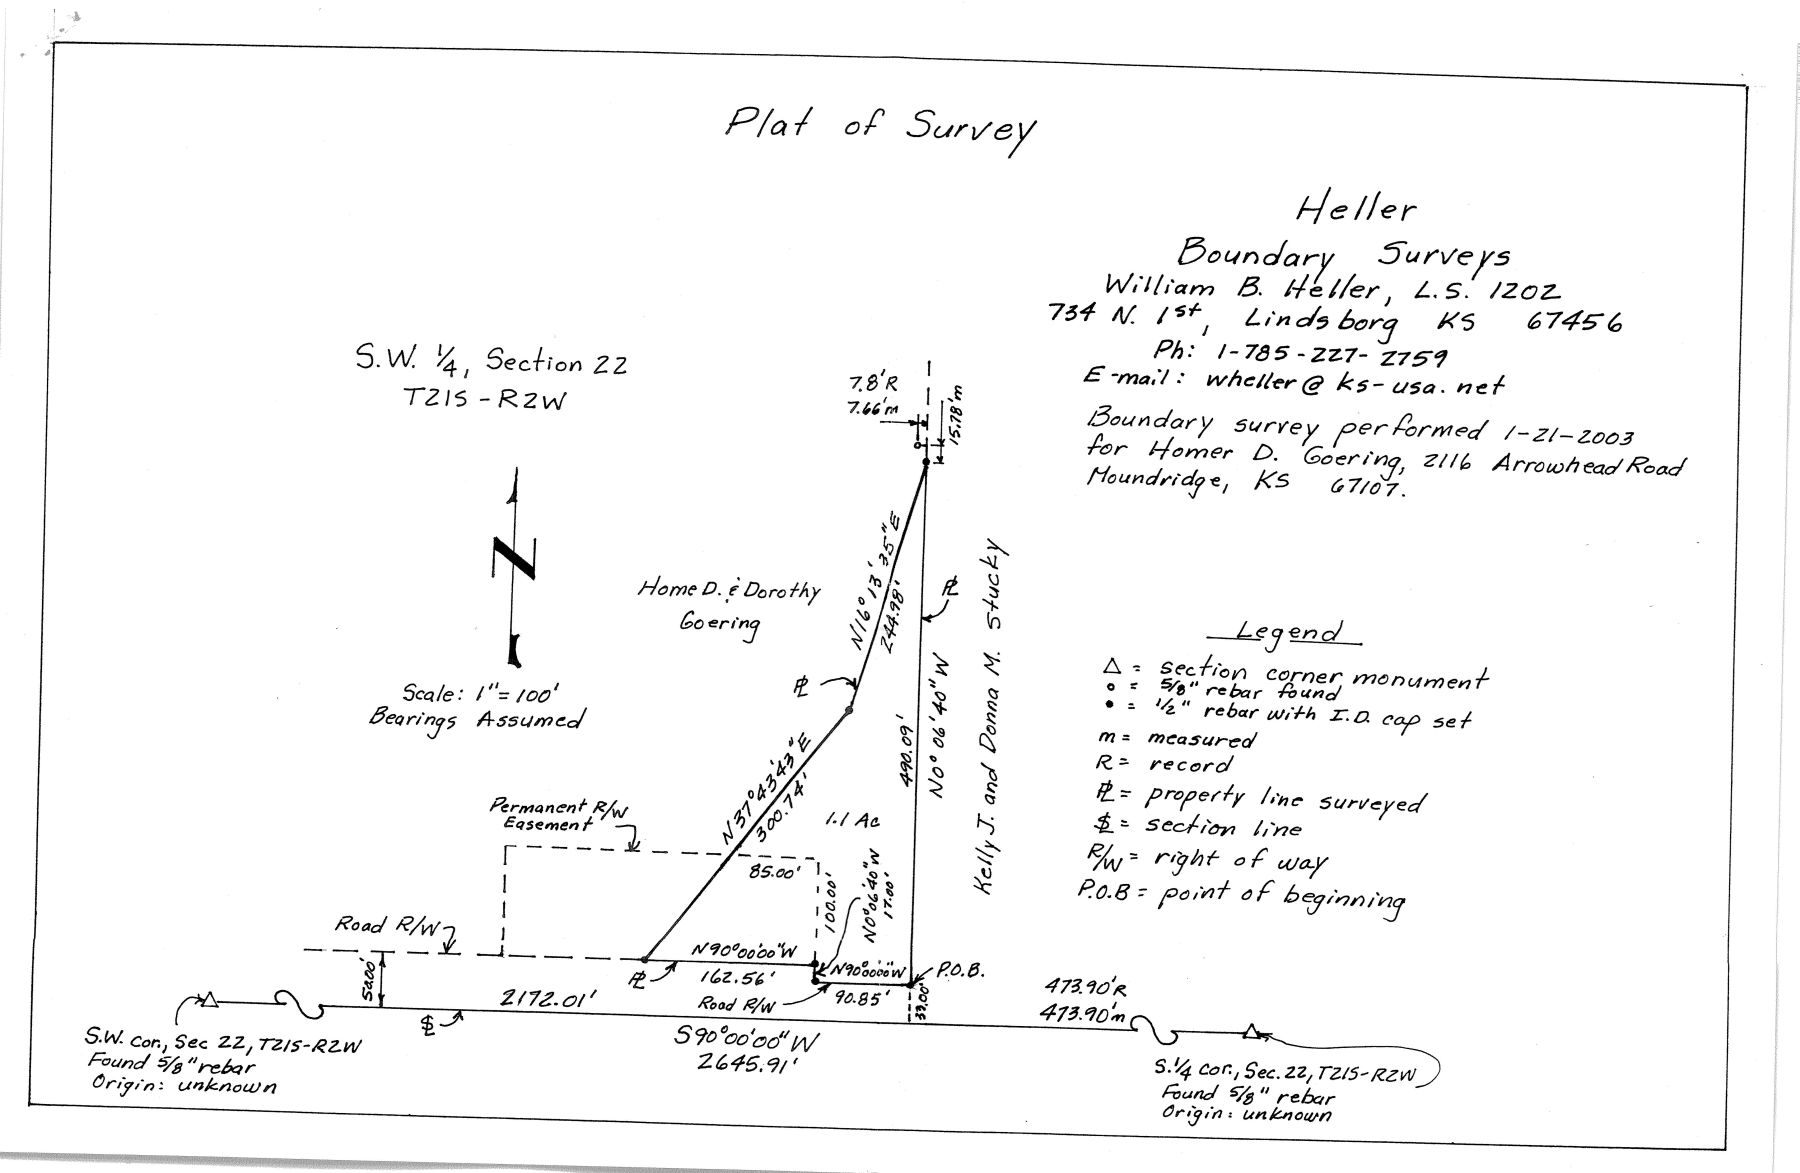 Plat of Survey
Heller
Boundary Surveys
William B. Heller, L.S. 1202
734 N. 1st, Lindsborg KS 67456
Ph: 1-785-227-2759
E-mail: wheller@ks-usa.net
Boundary survey performed 1-21-2003
for Homer D. Goering, 2116 Arrowhead Road
Moundridge, KS 67107.
S.W. 1/4, Section 22
T21S-R2W
7.8'R
7.66'm
15.78'm
N
Scale: 1"=100'
Bearings Assumed
Home D. & Dorothy
Goering
N16°13'35"E
244.98'
PL
PL
Kelly J. and Donna M. Stucky
490.09'
N0°06'40"W
N37°43'43"E
300.74'
1.1 Ac
Permanent R/W
Easement
85.00'
100.00'
N0°06'40"W
17.00'
Road R/W
50.00'
N90°00'00"W
162.56'
PL
N90°00'00"W
90.85'
Road R/W
P.O.B.
33.00'
2172.01'
SL
S90°00'00"W
2645.91'
473.90'R
473.90'm
S.W. cor., Sec 22, T21S-R2W
Found 5/8" rebar
Origin: unknown
S.1/4 cor., Sec. 22, T21S-R2W
Found 5/8" rebar
Origin: unknown
Legend
△ = section corner monument
○ = 5/8" rebar found
● = 1/2" rebar with I.D. cap set
m = measured
R = record
PL = property line surveyed
SL = section line
R/W = right of way
P.O.B = point of beginning